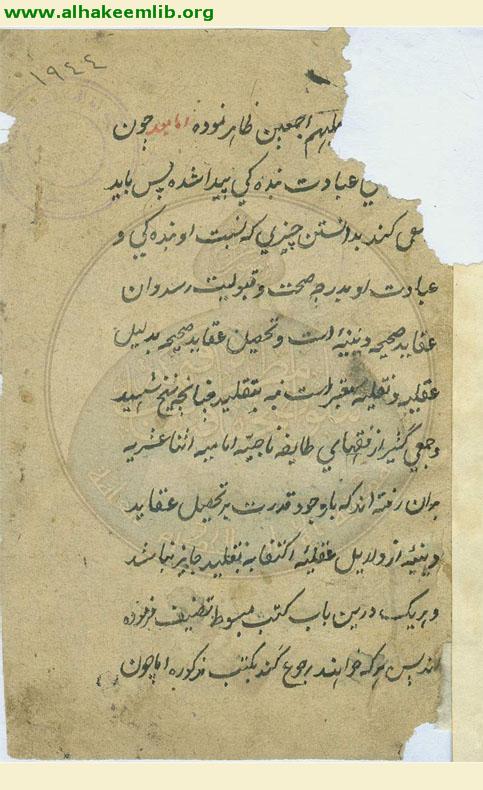 www.alhakeemlib.org
١٩٤٤
علیهم اجمعین ظاهر نموده امابعد چون
عبادت بنده کی پیدا شده پس باید
سعی کند بدانستن چیزی که بسبب او بنده کی و
عبادت او بدرجه صحت و قبولیت رسد و ان
عقاید صحیحه دینیه است و تحصیل عقاید صحیحه بدلیل
عقلیه و نقلیه معتبر است نه بتقلید چنانچه شیخ شهید
و جمعی کثیر از فقهای طایفه ناجیه امامیه اثنا عشریه
بران رفته اند که باوجود قدرت بر تحصیل عقاید
دینیه از دلایل عقلیه اکتفا به تقلید جایز نباشد
و هریک درین باب کتب مبسوط تصنیف فرموده
اند پس هر که خواهند رجوع کند بکتب مذکوره اما چون